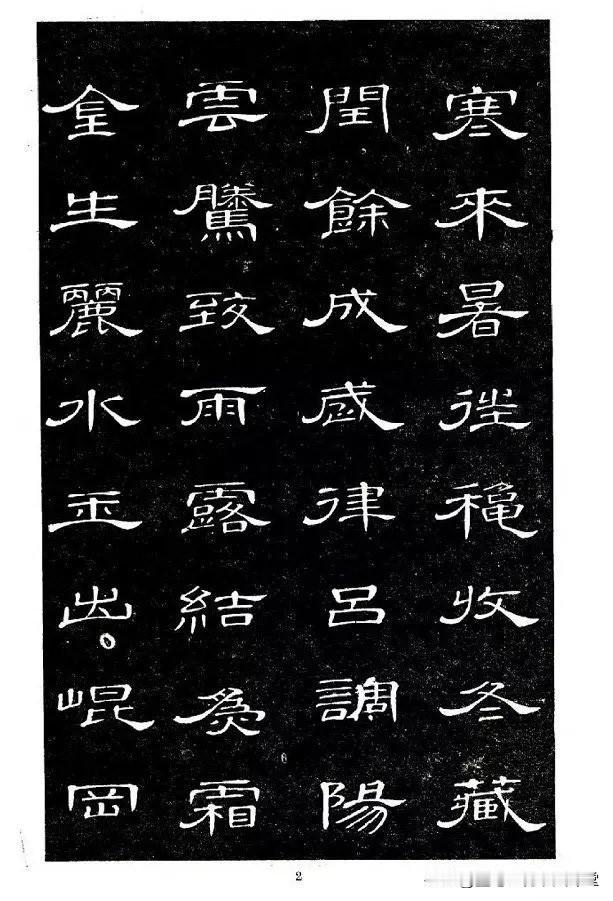 寒來暑往秋收冬藏
閏餘成歲律呂調陽
雲騰致雨露結為霜
金生麗水玉出崐岡
2